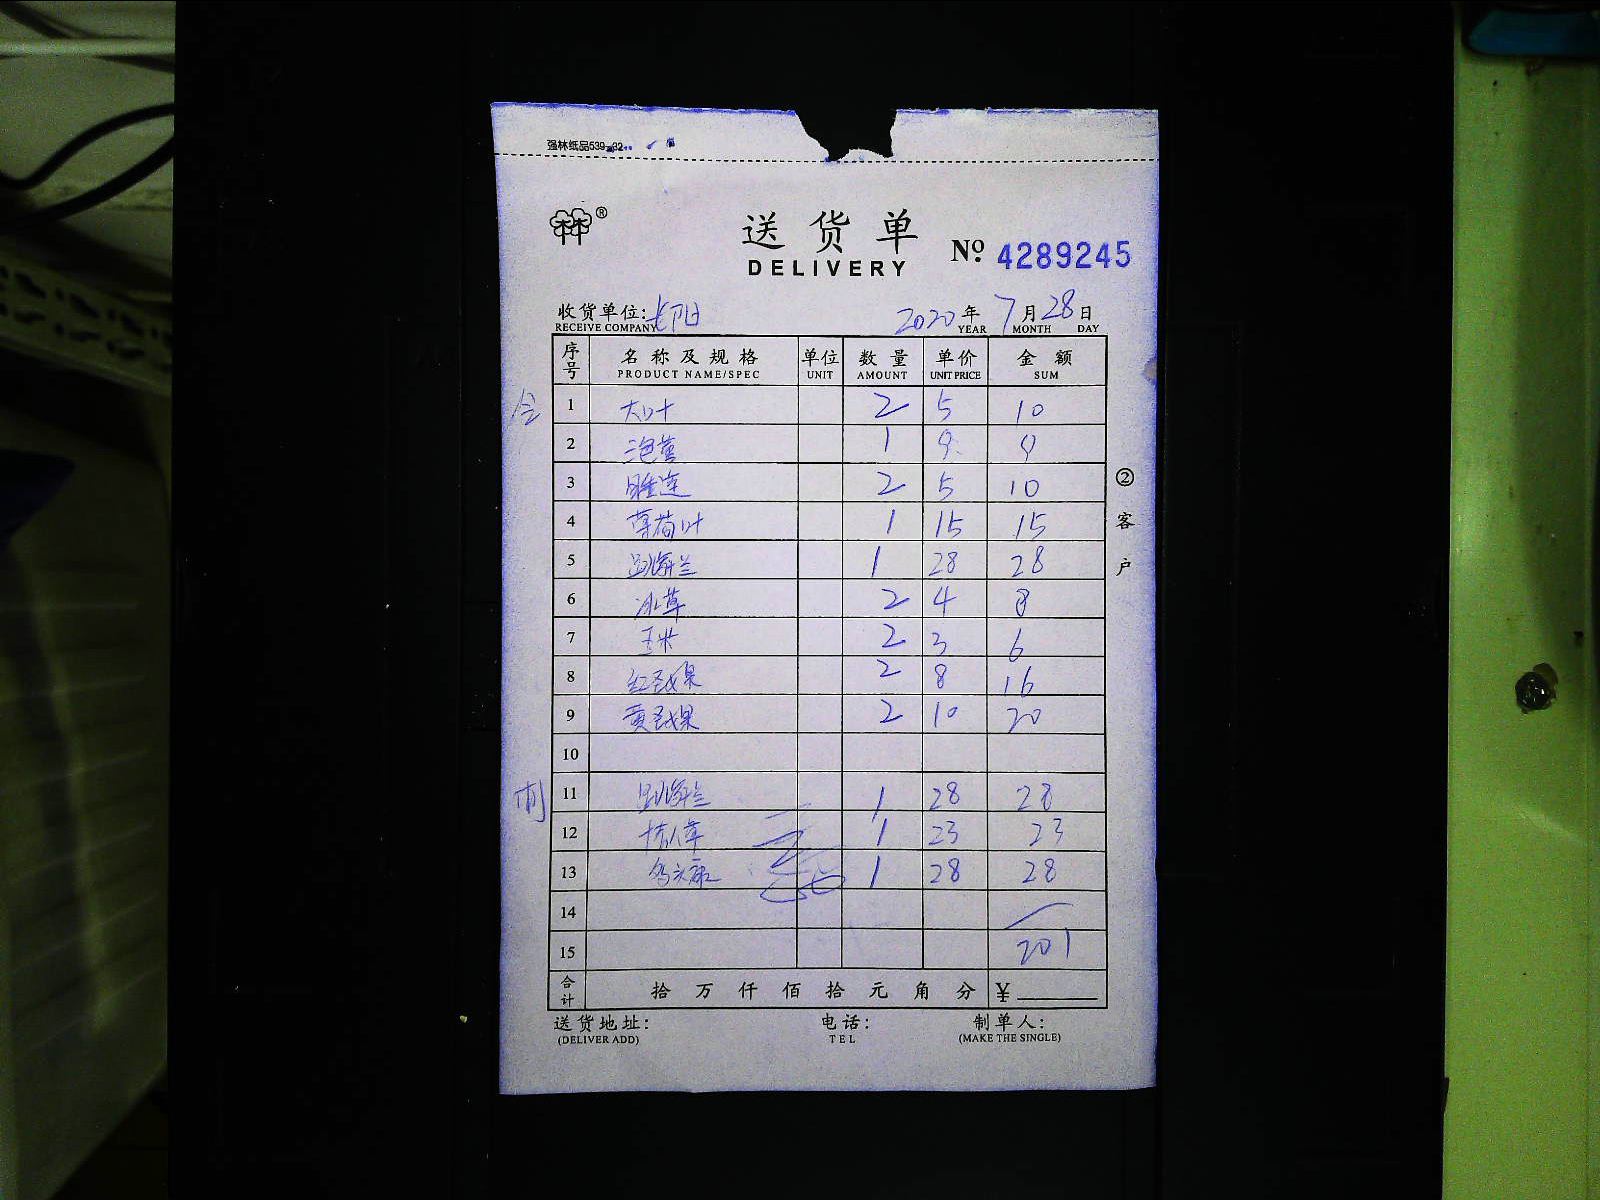 强林纸品539-32
林林®
送货单
DELIVERY
No. 4289245
收货单位: 长阳 2020年7月28日
RECEIVE COMPANY YEAR MONTH DAY
序号 名称及规格 单位 数量 单价 金额
PRODUCT NAME/SPEC UNIT AMOUNT UNIT PRICE SUM
1 大叶 2 5 10
2 1 9 9
3 2 5 10
4 薄荷叶 1 15 15
5 1 28 28
6 冰草 2 4 8
7 玉米 2 3 6
8 红圣女果 2 8 16
9 黄圣女果 2 10 20
10
11 1 28 28
12 1 23 23
13 1 28 28
14
15 201
合计 拾万仟佰拾元角分 ¥
②客户
送货地址: 电话: 制单人:
(DELIVER ADD) TEL (MAKE THE SINGLE)